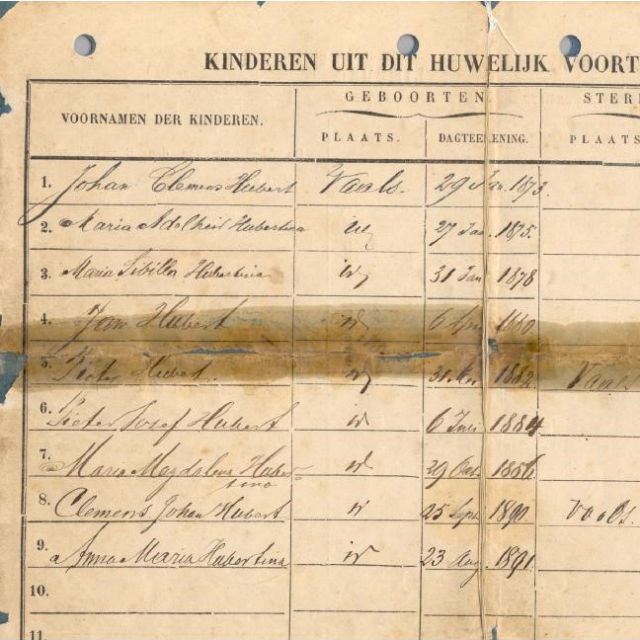 KINDEREN UIT DIT HUWELIJK VOORT
VOORNAMEN DER KINDEREN.
GEBOORTEN
STER
PLAATS.
DAGTEEKENING.
PLAATS
1. Johan Clemens Hubert Vaals. 29 Jan. 1873.
2. Maria Adelheid Hubertina id 27 Jan. 1875.
3. Maria Sibilla Hubertina id 31 Jan 1878
4. Jan Hubert id 6 1880
5. Pieter Hubert. id 1882 Vaals
6. Pieter Josef Hubert id 6 1884
7. Maria Magdalena Huber=
tina id 29 1886.
8. Clemens Johan Hubert id 25 Sept. Vaals.
9. Anna Maria Hubertina id 23 Aug. 1891
10.
11.